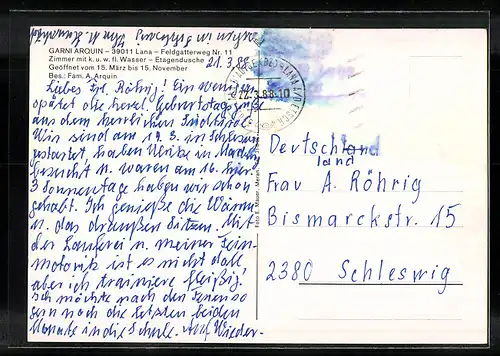 GARNI ARQUIN – 39011 Lana – Feldgatterweg Nr. 11
Zimmer mit k. u. w. fl. Wasser – Etagendusche
Geöffnet vom 15. März bis 15. November
Bes.: Fam. A. Arquin
21.3.88
Liebes Frl. Röhrig! Ein wenig
spätet die herzl. Geburtstagsgrüße
aus dem herrlichen Südtirol.
Wir sind am 14.3. in Schleswig
gestartet, haben Ulrike in Marburg
besucht u. waren am 16. hier.
3 Sonnentage haben wir schon
gehabt. Ich genieße die Wärme
u. das draußen Sitzen. Mit
der Lauferei u. meiner Fein-
motorik ist es nicht doll
aber ich trainiere fleißig!
Ich möchte nach den
gern noch die letzten beiden
Monate in die Schule. Auf Wieder-
sehen in Schleswig
22.3.88-10
Deutschland
land
Frau A. Röhrig
Bismarckstr. 15
2380 Schleswig